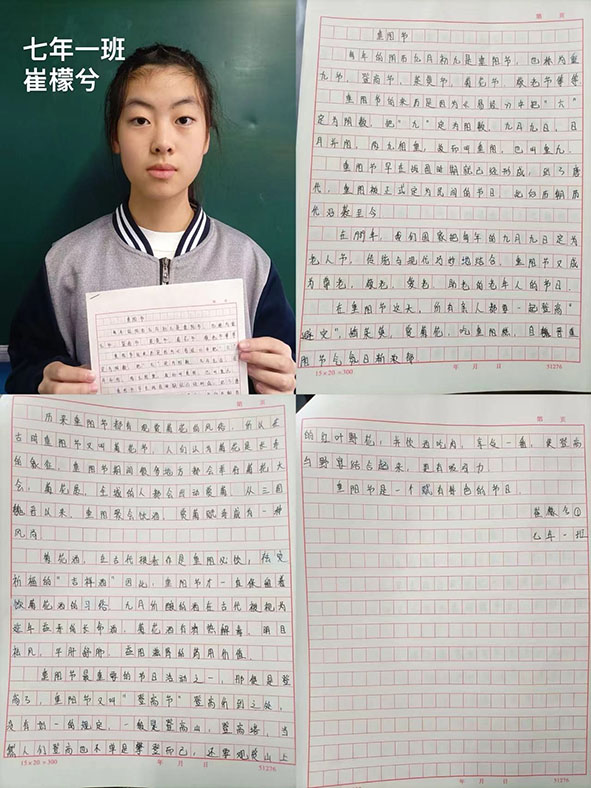 七年一班
崔檬兮
第 页
重阳节
每年的阴历九月初九是重阳节，也称为重
九节，登高节，茱萸节，菊花节，敬老节等等
重阳节的来历是因为《易经》中把“六”
定为阴数，把“九”定为阳数，九月九日，日
月并阳，两九相重，故而叫重阳，也叫重九
重阳节早在战国时期就已经形成，到了唐
代，重阳被正式定为民间的节日，此后历朝历
代沿袭至今
在明年，我们国家把每年的九月九日定为
老人节，传统与现代巧妙地结合，重阳节又成
为尊老，敬老，爱老，助老的老年人的节日。
在重阳节这天，所有亲人都要一起登高“
避灾”，插茱萸，赏菊花，吃重阳糕，
阳节
15×20=300
年 月 日
51276
第 页
历来重阳节都有观赏菊花的风俗，所以在
古时重阳节又叫菊花节，人们认为菊花是长寿
的象征，重阳节期间很多地方都会举行菊花大
会，菊花展，全城的人都会出动赏菊，从三国
魏晋以来，重阳聚会饮酒，赏菊赋诗成有一种
风尚
菊花酒，在古代被看作是重阳必饮，祛灾
祈福的“吉祥酒”因此，重阳节才一直保留着
饮菊花酒的习俗，九月份酿的酒在古代被视为
延年益寿的长命酒，菊花酒有清热解毒，明目
祛风，平肝舒肺，益阴滋肾的药用价值。
重阳节最重要的节日活动之一，那便是登
高了，重阳节又叫“登高节”登高所到之处，
没有划一的规定，一般是登高山，登高塔，当
然人们登高也不单是攀登而已，还要观赏山上
15×20=300
年 月 日
51276
第 页
的红叶野花，并饮酒吃肉，享受一番，使登高
与野宴结合起来，更有吸引力
重阳节是一个赋有特色的节日。
崔檬兮
七年一班
年 月 日
51276